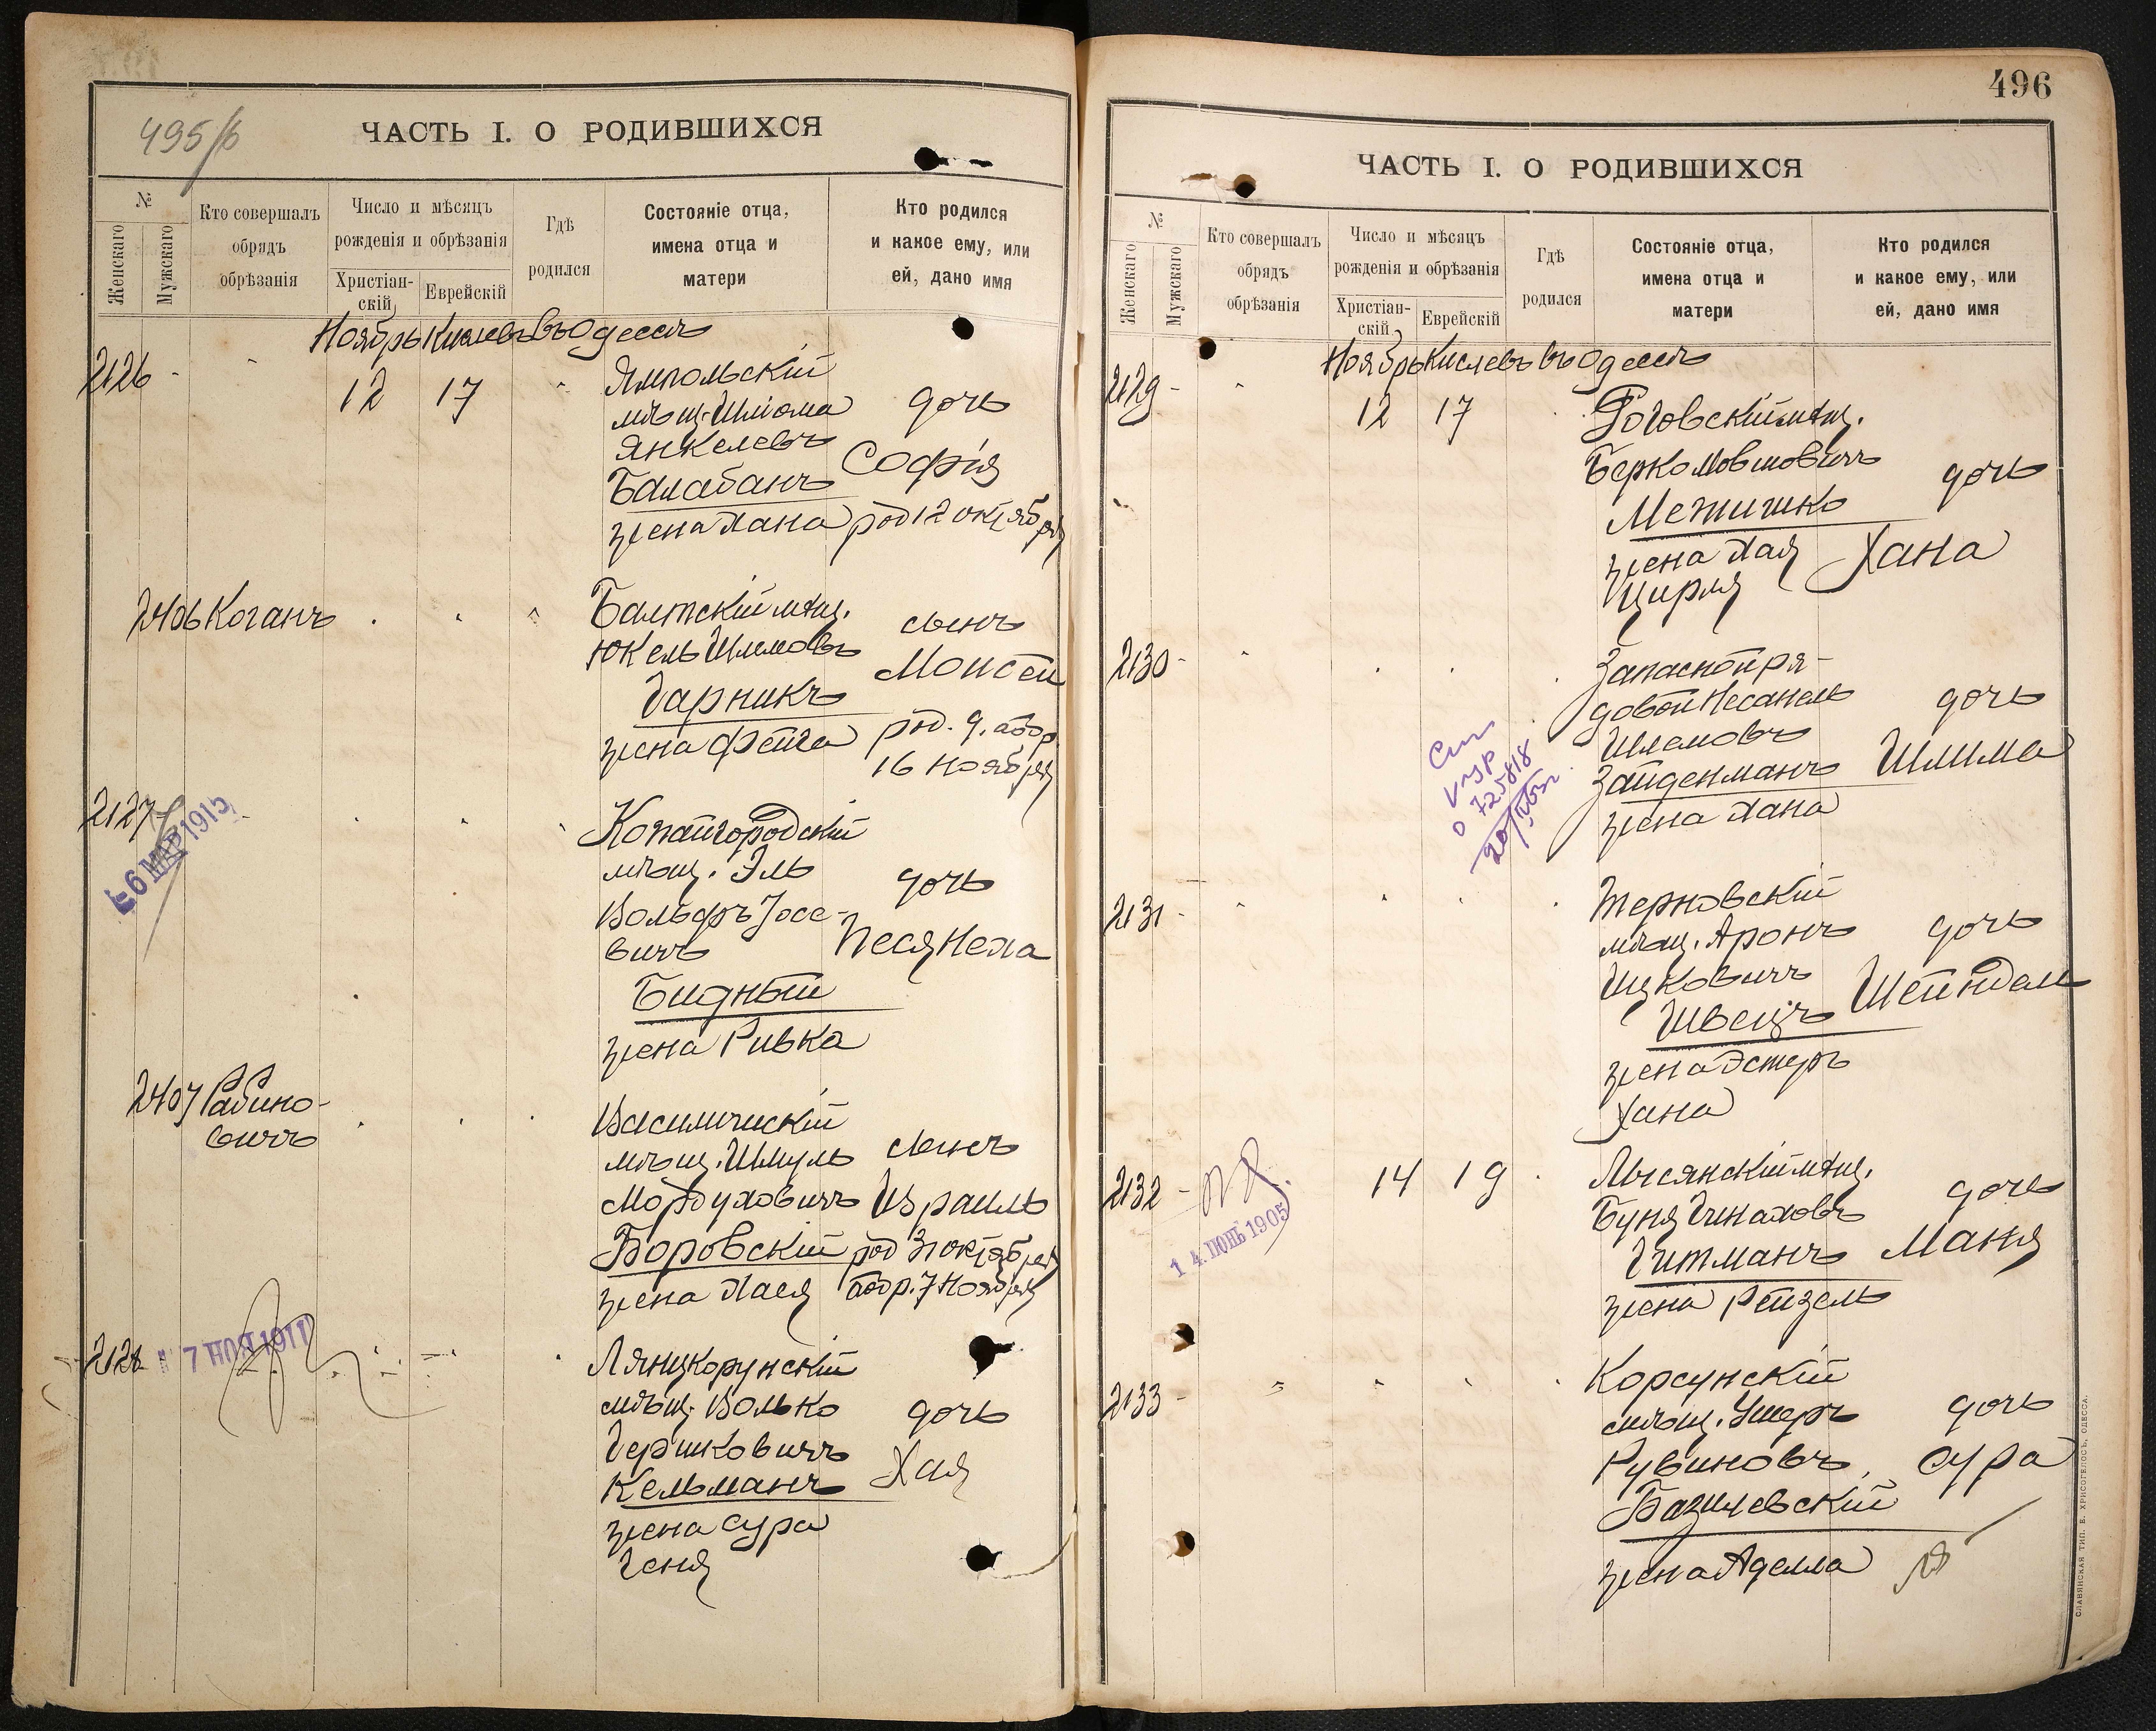 495/б
ЧАСТЬ I. О РОДИВШИХСЯ
№
Женскаго
Мужскаго
Кто совершалъ
обрядъ
обрѣзанія
Число и мѣсяцъ
рожденія и обрѣзанія
Христіан-
скій
Еврейскій
Гдѣ
родился
Состояніе отца,
имена отца и
матери
Кто родился
и какое ему, или
ей, дано имя
Ноябрь Кислевъ въ Одессѣ
2126 - 12 17 Ямпольскій
мѣщ. Шлiома дочь
Янкелевъ Софія
Балабанъ
жена Хана род 12 октября
2406 Коганъ Балтскій мѣщ. сынъ
Юкель Шлемовъ Моисей
Гарникъ
жена Фейга род. 9, абр
16 ноября
2127 Копайгородскій
6 МАР 1915
мѣщ. Эль дочь
Вольфъ Іосе-
вичъ Песя Неха
Бидный
жена Ривка
2407 Рабино-
вичъ
Василичискій
мѣщ. Шмуль сынъ
Мордуховичъ Израиль
Боровскій род 31 октября
жена Хася обр. 7 Ноября
2128 7 НОЯ 1911
Лянцкорунскій
мѣщ. Волько дочь
Гершковичъ Хая
Кельманъ
жена Сура
Геня
496
ЧАСТЬ I. О РОДИВШИХСЯ
№
Женскаго
Мужскаго
Кто совершалъ
обрядъ
обрѣзанія
Число и мѣсяцъ
рожденія и обрѣзанія
Христіан-
скій
Еврейскій
Гдѣ
родился
Состояніе отца,
имена отца и
матери
Кто родился
и какое ему, или
ей, дано имя
Ноябрь Кислевъ въ Одессѣ
2129 - 12 17 Роговскій мѣщ.
Берко Мовшовичъ дочь
Межишко
жена Хая Хана
Цирля
2130 - Запасной ря-
довой Несанель дочь
Шлемовъ Шлима
Зайденманъ
жена Хана
725818
2131 - Терновскій
мѣщ. Аронъ дочь
Ицковичъ Шейндель
Швецъ
жена Эстеръ
Хана
2132 - 14 19 Лысянскій мѣщ.
14 ІЮНЬ 1905
Буня Гинаховъ дочь
Гитманъ Маня
жена Рейзель
2133 - Корсунскій
мѣщ. Ушеръ дочь
Рувиновъ Сура
Базилевскій
жена Аделла
СЛАВЯНСКАЯ ТИП. Е. ХРИСОГЕЛОСЪ, ОДЕССА.